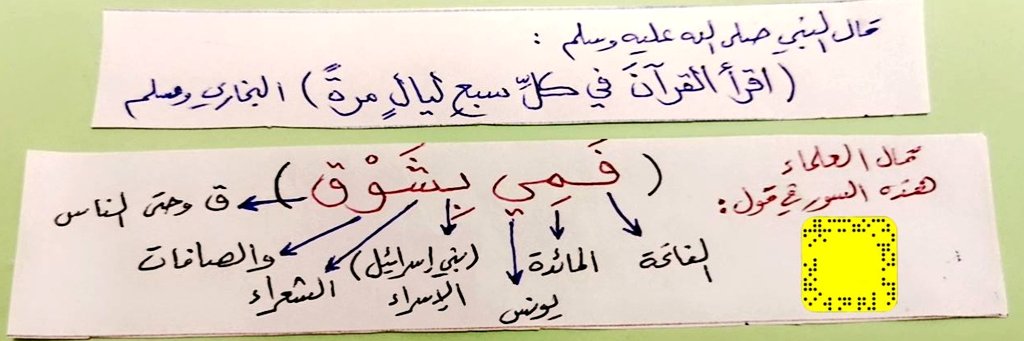 قال النبي صلى الله عليه وسلم :
(اقرأ القرآنَ في كلِّ سبعِ ليالٍ مرةً) البخاري ومسلم
قال العلماء
هذه السور في قول :
(فَمِي بِشَوْق)
ق وحتى الناس
الفاتحة
المائدة
يونس
(بني إسرائيل)
الإسراء
الشعراء
والصافات